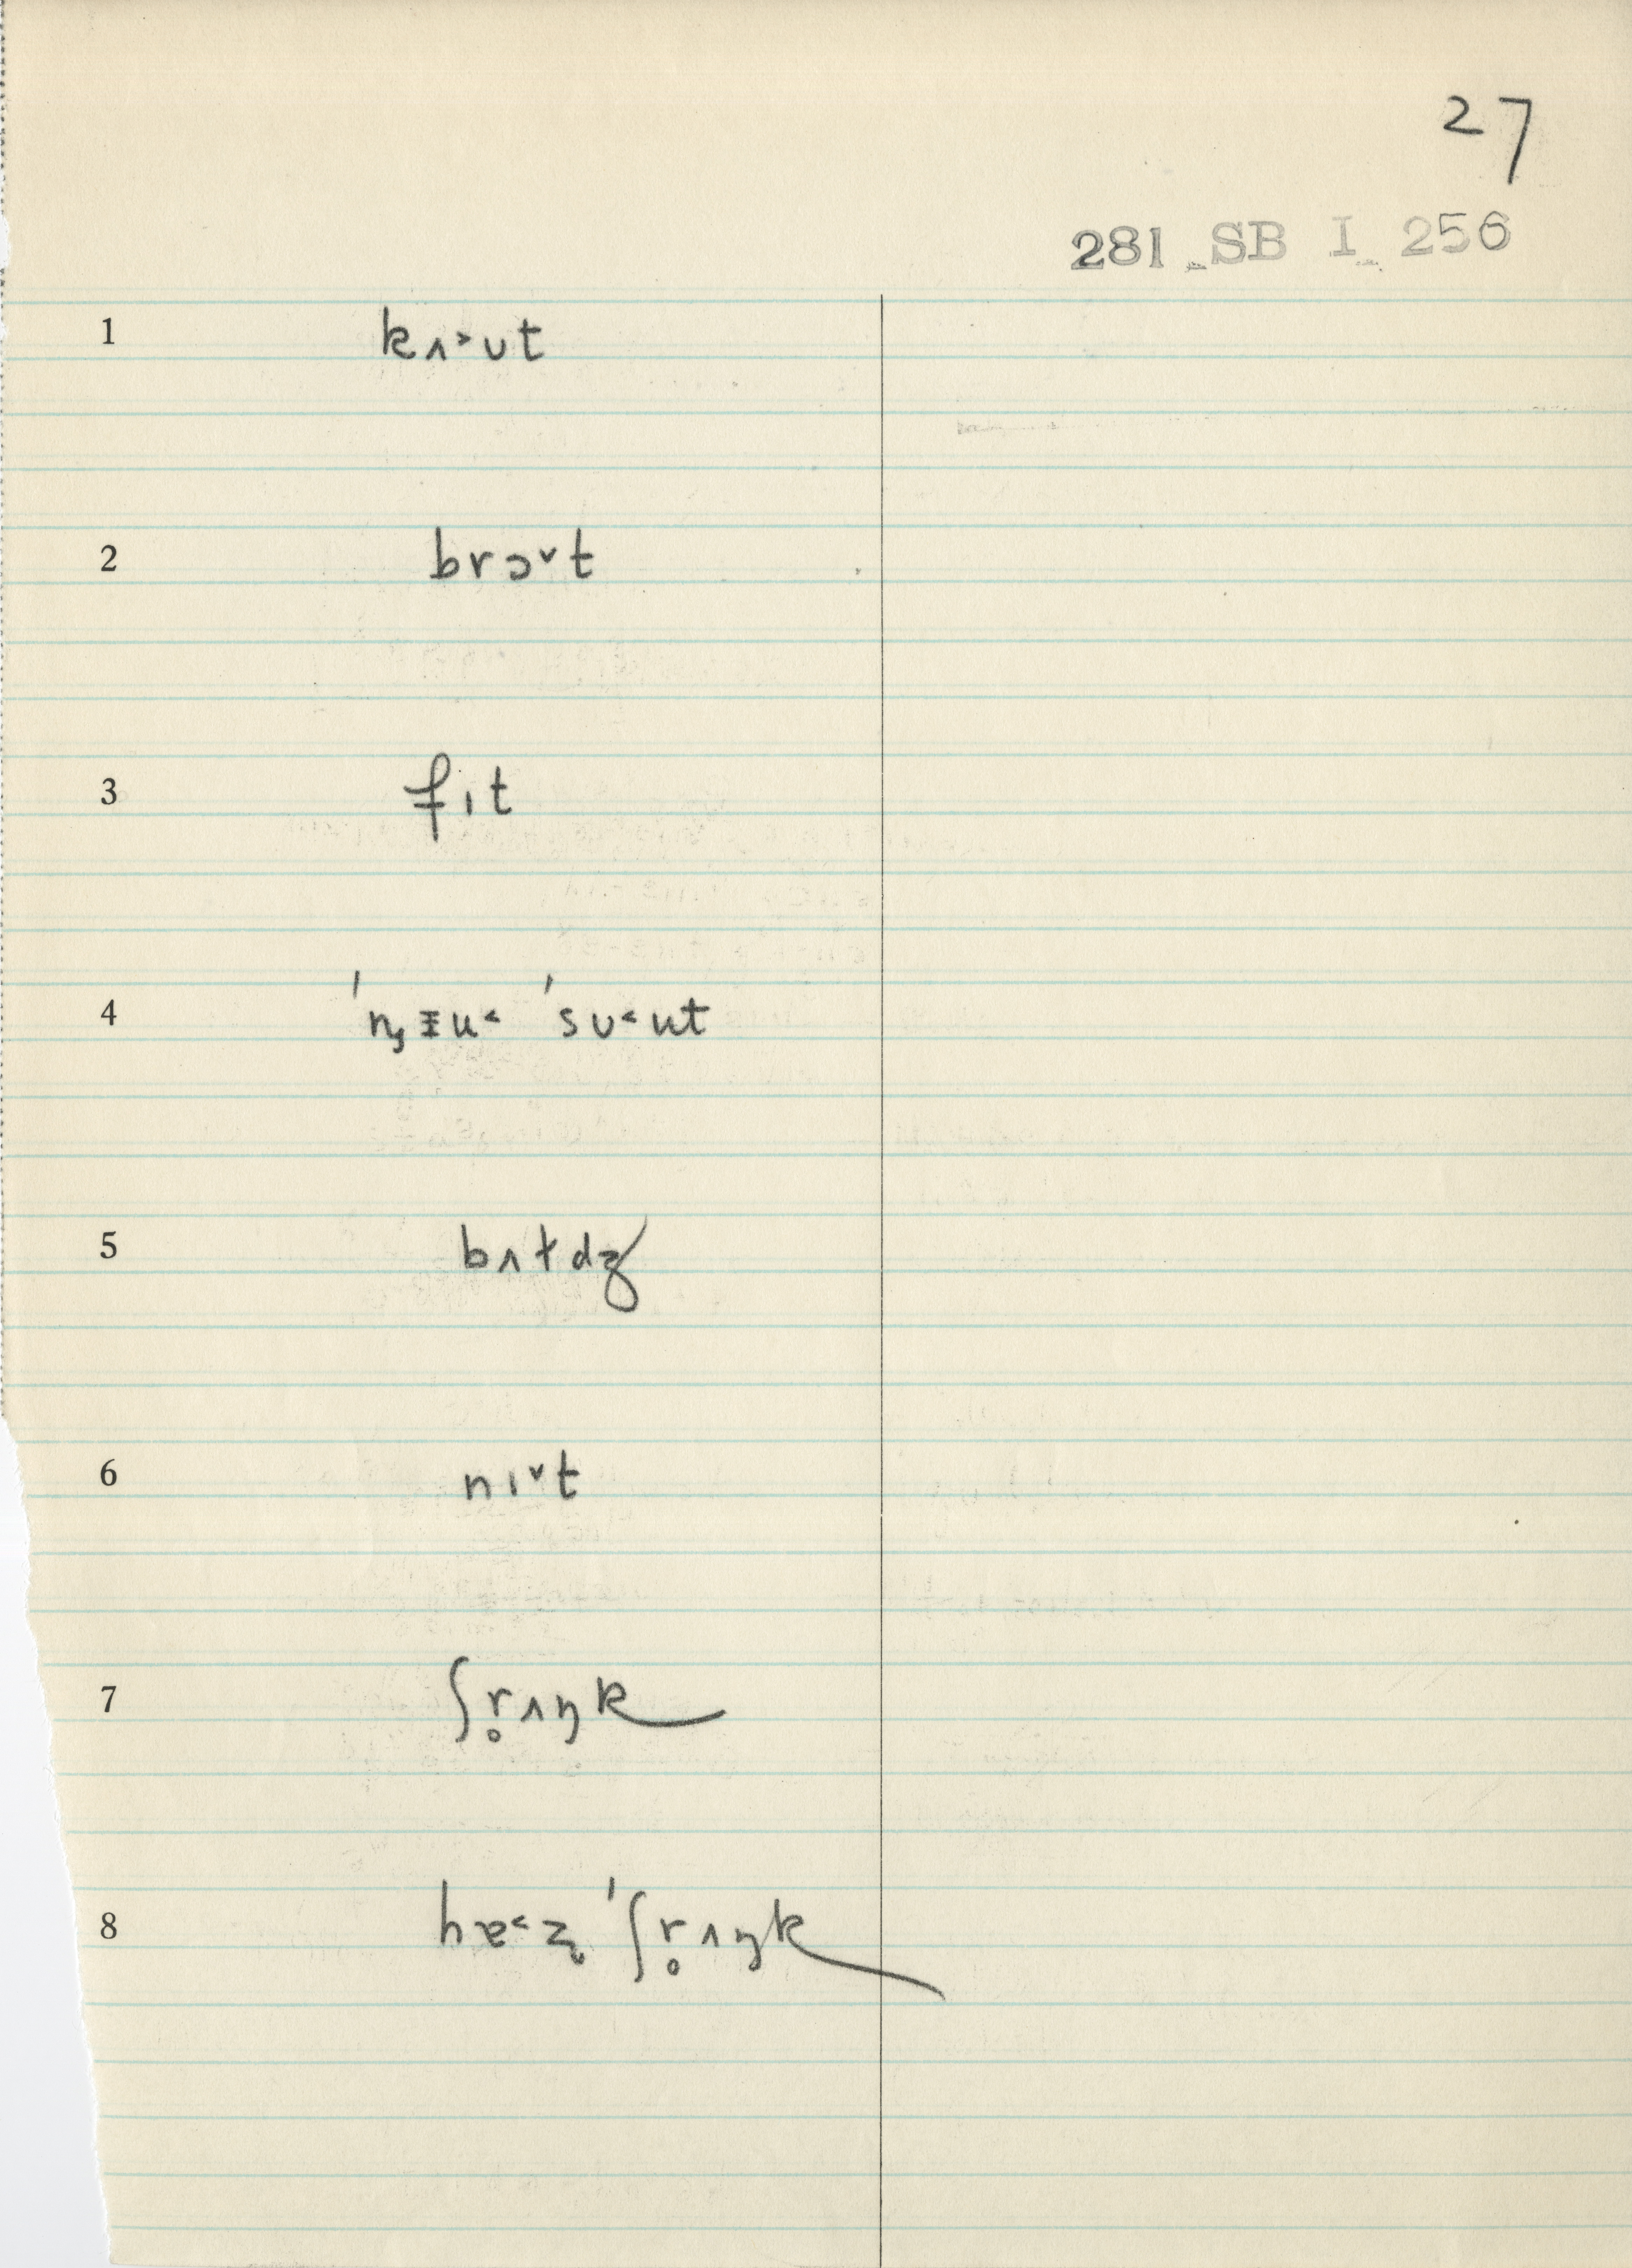 27
281 SB I 256
1 kʌ˃ʊt
2 brɔ˅t
3 fɪt
4 ˈnᶾᵻu˂ ˈsʊ˂ut
5 bʌɫdʒ
6 nɪ˅t
7 ʃr̥ʌŋk
8 hɐ˂z̨ ˈʃr̥ʌŋk